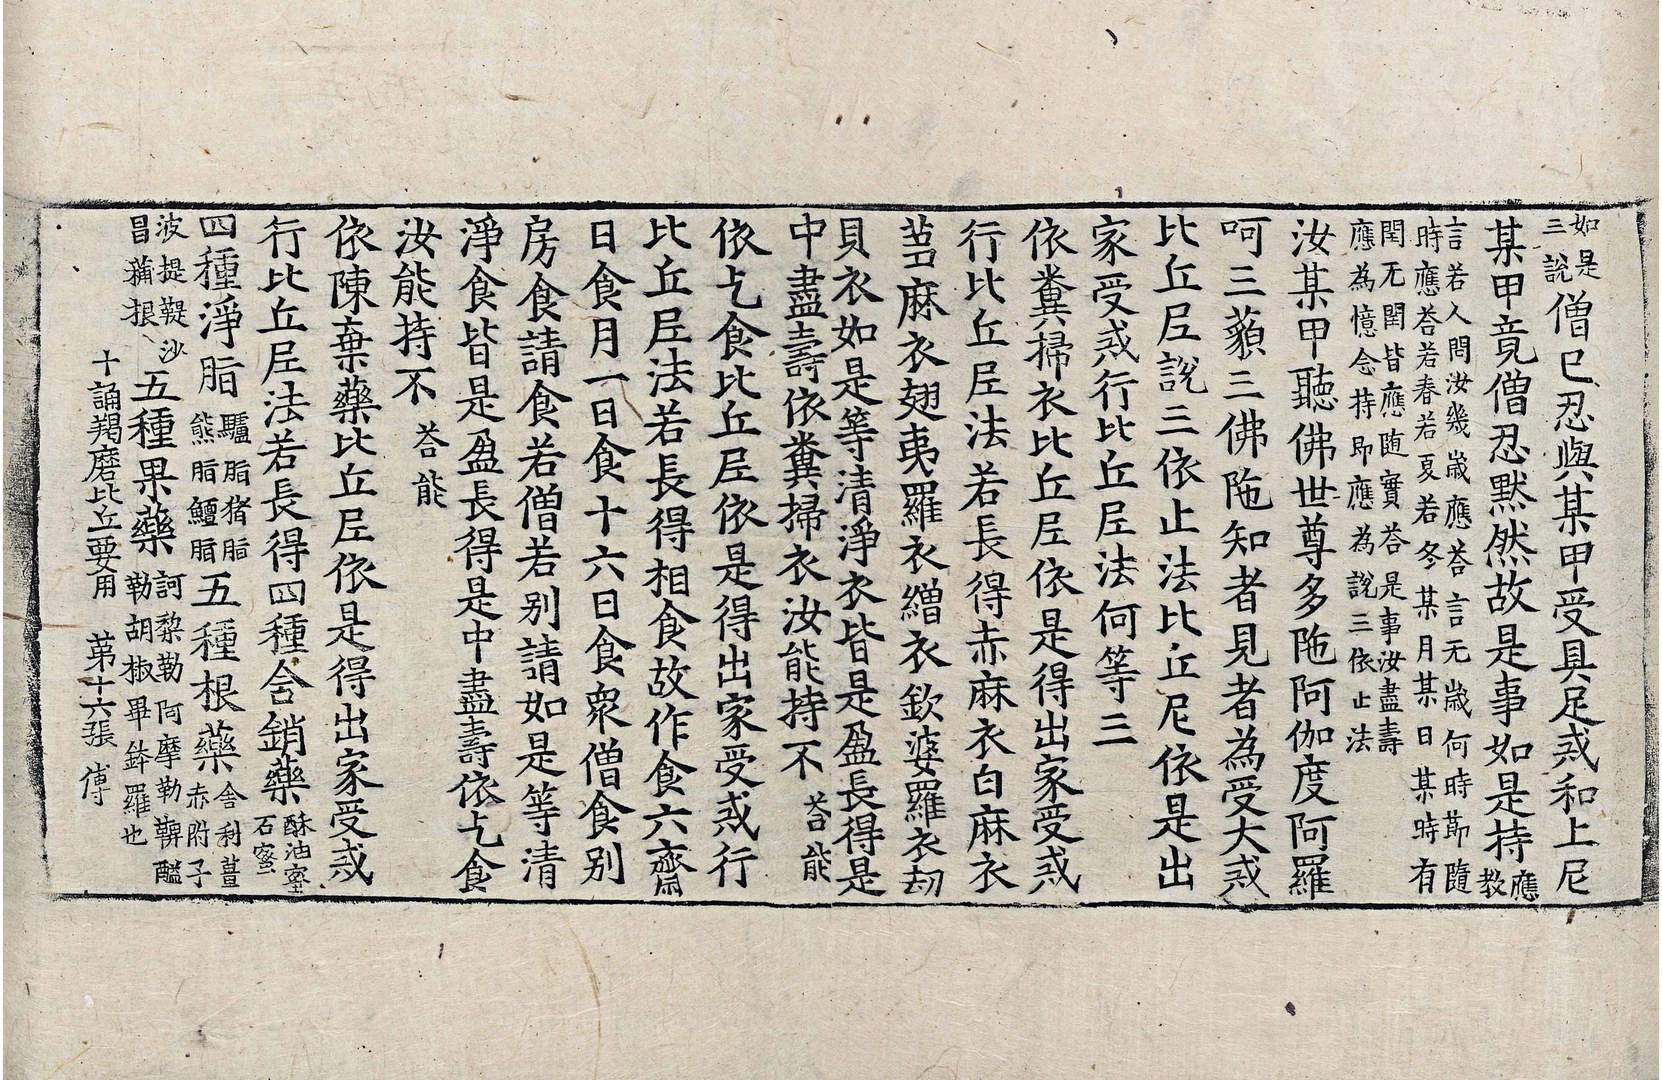 如是三說僧已忍與某甲受具足戒和上尼
某甲竟僧忍黙然故是事如是持應教
言若人問汝幾歲應荅言无歲何時節隨
時應荅若春若夏若冬某月某日某時有
閏无閏皆應随實荅是事汝盡壽
應為憶念持即應為說三依止法
汝某甲聽佛世尊多陁阿伽度阿羅
呵三藐三佛陁知者見者為受大戒
比丘尼說三依止法比丘尼依是出
家受戒行比丘尼法何等三
依糞掃衣比丘尼依是得出家受戒
行比丘尼法若長得赤麻衣白麻衣
芻麻衣翅夷羅衣繒衣欽婆羅衣刧
貝衣如是等清淨衣皆是盈長得是
中盡壽依糞掃衣汝能持不荅能
依乞食比丘尼依是得出家受戒行
比丘尼法若長得相食故作食六齋
日食月一日食十六日食衆僧食别
房食請食若僧若别請如是等清
淨食皆是盈長得是中盡壽依乞食
汝能持不荅能
依陳棄藥比丘尼依是得出家受戒
行比丘尼法若長得四種含銷藥酥油蜜石蜜
四種淨脂驢脂猪脂熊脂鱣脂五種根藥舎利薑赤附子
波提鞮沙昌蒱根五種果藥訶黎勒阿摩勒鞞醯勒胡椒畢鉢羅也
十誦羯磨比丘要用　苐十六張　傅